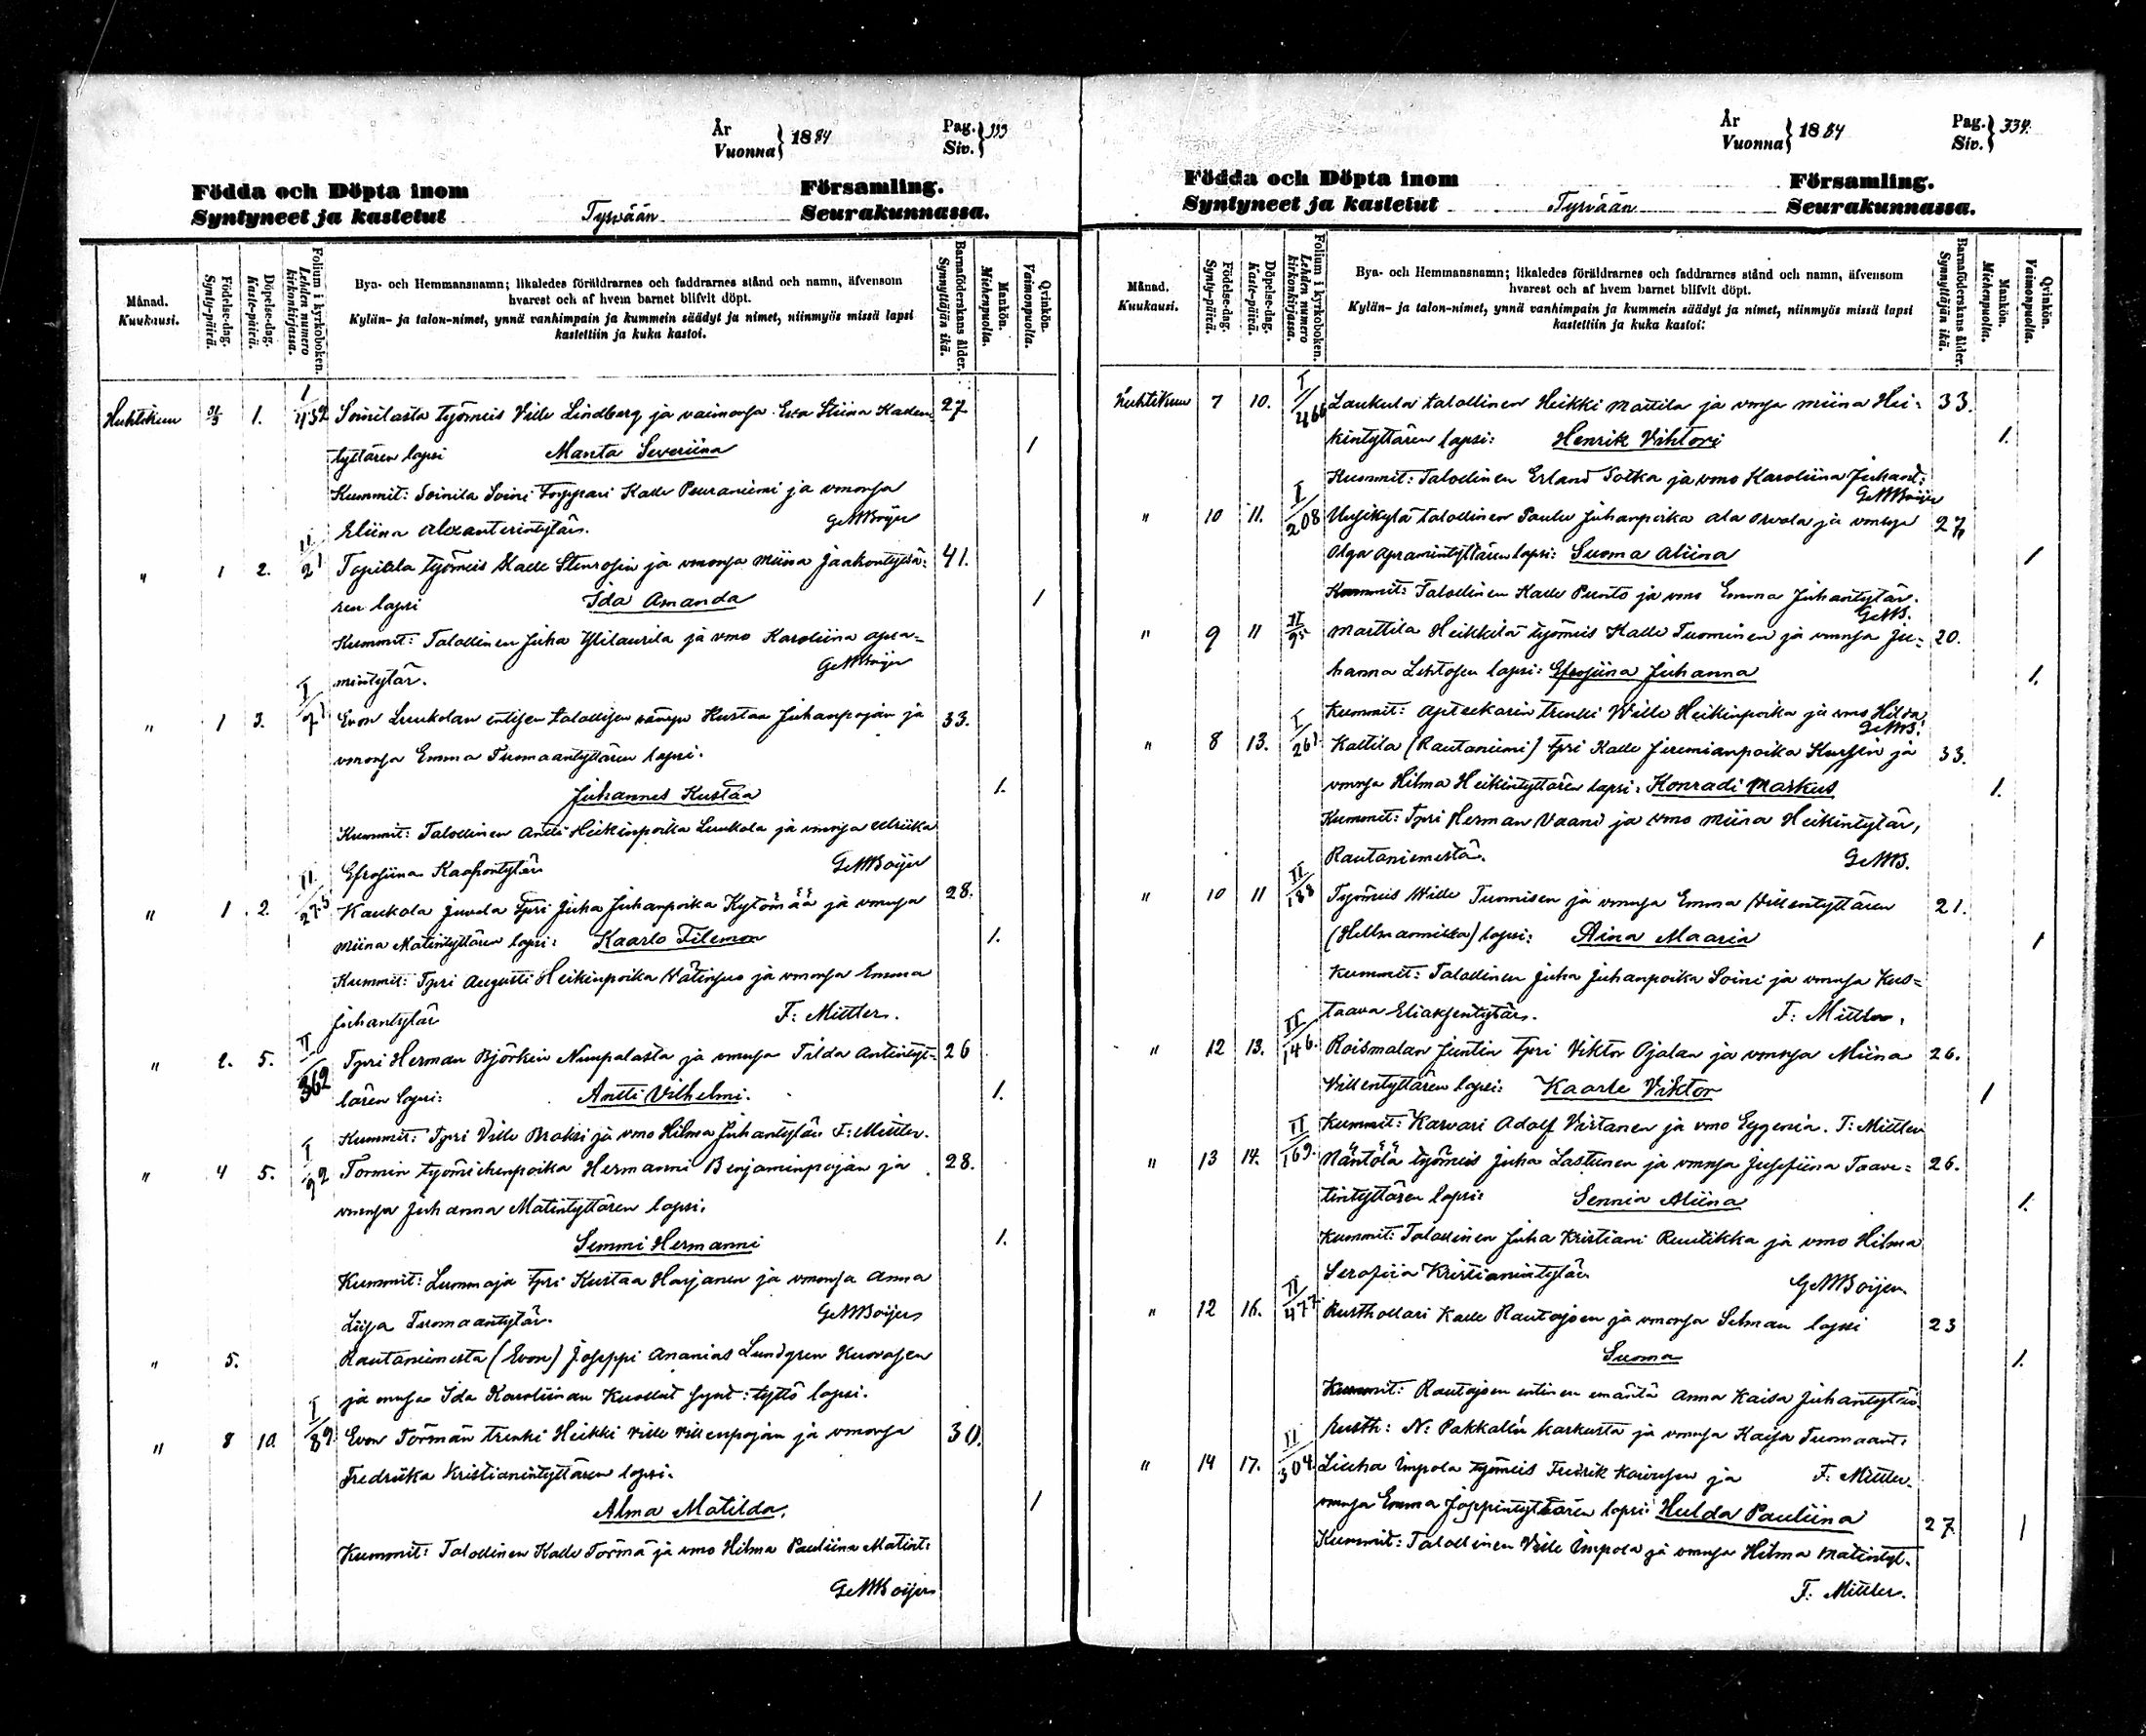 År
Vuonna } 1884
Pag.
Siv. } 333
Födda och Döpta inom Församling.
Syntyneet ja kastetut Tyrvään Seurakunnassa.
Månad.
Kuukausi.
Födelse-dag.
Synty-päivä.
Döpelse-dag.
Kaste-päivä.
Folium i kyrkoboken.
Lehden numero kirkonkirjassa.
Bya- och Hemmansnamn; likaledes föräldrarnes och faddrarnes stånd och namn, äfvensom
hvarest och af hvem barnet blifvit döpt.
Kylän- ja talon-nimet, ynnä vanhimpain ja kummein säädyt ja nimet, niinmyös missä lapsi
kastettiin ja kuka kastoi.
Barnaföderskans ålder.
Synnyttäjän ikä.
Mankön.
Miehenpuolia.
Qvinkön.
Vaimonpuolia.
Huhtikuu 31/3 1. I/432 Soinilasta työmies Ville Lindberg ja vaimonsa Eva Stiina Kallen 27
tyttären lapsi Manta Severiina 1
Kummit: Soinila Soini Torppari Kalle Peuraniemi ja vmonsa
Eliina Alexanterintytär. GeMBoijer
" 1 2. II/21 Topilla työmies Kalle Stenrosin ja vmonsa Miina Jaakontyttä- 41.
ren lapsi Ida Amanda 1
Kummit: Talollinen Juha Ylilaurila ja vmo Karoliina Apra-
mintytär. GeMBoijer
" 1 3. I/71 Evon Luukolan entisen talollisen Kustaa Juhanpojan ja 33.
vmonsa Emma Tuomaantyttären lapsi.
Juhannes Kustaa 1.
Kummit: Talollinen Antti Heikinpoika Luukola ja vmonsa Ulriika
Efrosiina Kaaponytär GeMBoijer
" 1 2. II/275 Kaukola Juvela Tpri Juha Juhanpoika Kytömää ja vmonsa 28.
Miina Matintyttären lapsi: Kaarlo Filemon 1.
Kummit: Tpri Augusti Heikinpoika ja vmonsa Emma
Juhantytär F: Mittler.
" 2. 5. II/362 Tpri Herman Björkin Nuupalasta ja vmonsa Tilda Antintyt- 26
tären lapsi: Antti Vilhelmi. 1.
Kummit: Tpri Ville Braksi ja vmo Hilma Juhantytär F: Mittler.
" 4 5. I/92 Tormin työmiehenpoika Hermanni Benjaminpojan ja 28.
vmonsa Juhanna Matintyttären lapsi.
Semmi Hermanni 1.
Kummit: Lummaja Tpri Kustaa Harjanen ja vmonsa Anna
Liisa Tuomaantytär. GeMBoijer
" 5. Rautaniemestä (Evon) Joseppi Ananias Lundgren Kuovasen
ja vmonsa Ida Karoliinan Kuollut synt: tyttö lapsi.
" 8 10. I/89 Evon Törmän trenki Heikki Ville Villenpojan ja vmonsa 30.
Fredriika Kristianintyttären lapsi.
Alma Matilda. 1
Kummit: Talollinen Kalle Törmä ja vmo Hilma Pauliina Matint:
GeMBoijer
År
Vuonna } 1884
Pag.
Siv. } 334.
Födda och Döpta inom Församling.
Syntyneet ja kastetut Tyrvään Seurakunnassa.
Månad.
Kuukausi.
Födelse-dag.
Synty-päivä.
Döpelse-dag.
Kaste-päivä.
Folium i kyrkoboken.
Lehden numero kirkonkirjassa.
Bya- och Hemmansnamn; likaledes föräldrarnes och faddrarnes stånd och namn, äfvensom
hvarest och af hvem barnet blifvit döpt.
Kylän- ja talon-nimet, ynnä vanhimpain ja kummein säädyt ja nimet, niinmyös missä lapsi
kastettiin ja kuka kastoi:
Barnaföderskans ålder.
Synnyttäjän ikä.
Mankön.
Miehenpuolia.
Qvinkön.
Vaimonpuolia.
Huhtikuu 7 10. I/466 Laukula talollinen Heikki Mattila ja vmsa Miina Hei- 33.
kintyttären lapsi: Henrik Vihtori 1.
Kummit: Talollinen Erland Sotka ja vmo Karoliina Juhant:
GeMBoijer
" 10 11. I/208 Uusikylä talollinen Paulu Juhanpoika Ala Orvola ja vmonsa 27.
Olga Apramintyttären lapsi: Suoma Aliina 1
Kummit: Talollinen Kalle Punto ja vmo Emma Juhantytär.
GeMB.
" 9 11 II/95 Marttila Heikkilä työmies Kalle Tuominen ja vmonsa Ju- 20.
hanna Lehtosen lapsi: Efrosiina Juhanna 1.
Kummit: Apteekarin trenki Wille Heikinpoika ja vmo Hilda
GeMB.
" 8 13. I/261 Kaltila (Rautaniemi) Tpri Kalle Jeremianpoika ja 33.
vmonsa Hilma Heikintyttären lapsi: Konradi Markus 1.
Kummit: Tpri Herman Vaani ja vmo Miina Heikintytär,
Rautaniemestä. GeMB.
" 10 11 II/188 Työmies Wille Tuomisen ja vmonsa Emma Villentyttären 21.
lapsi: Aina Maaria 1
Kummit: Talollinen Juha Juhanpoika Soini ja vmonsa Kus-
taava Eliaksentytär. F: Mittler.
" 12 13. II/146. Roismalan Juntin Tpri Viktor Ojalan ja vmonsa Miina 26.
Villentyttären lapsi: Kaarle Viktor 1
Kummit: Karvari Adolf Virtanen ja vmo Eugenia. F: Mittler
" 13 14. II/169. Näntölä työmies Juha Lastunen ja vmonsa Josefiina Taave- 26.
tintyttären lapsi: Sennia Aliina 1.
Kummit: Talollinen Juha Kristiani Ruutikka ja vmo Hilma
Serafiia Kristianintytär GeMBoijer.
" 12 16. II/477 Rusthollari Kalle Rautajoen ja vmonsa Selman lapsi 23
Suoma 1.
Kummit: Rautajoen entinen emäntä Anna Kaisa Juhantytär
rusth: N: Pakkalén Karkusta ja vmonsa Kaisa Tuomaant.
" 14 17. II/304. Liuha Impola työmies Fredrik Kaivosen ja F: Mittler.
vmonsa Emma Joseppintyttären lapsi: Hulda Pauliina 27. 1
Kummit: Talollinen Ville Impola ja vmonsa Hilma Matintyt.
F: Mittler.